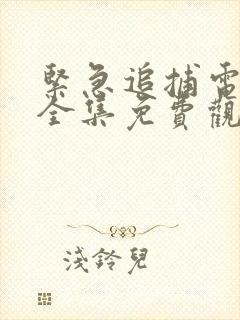 緊急追捕電
全集免費觀
淺鈴兒